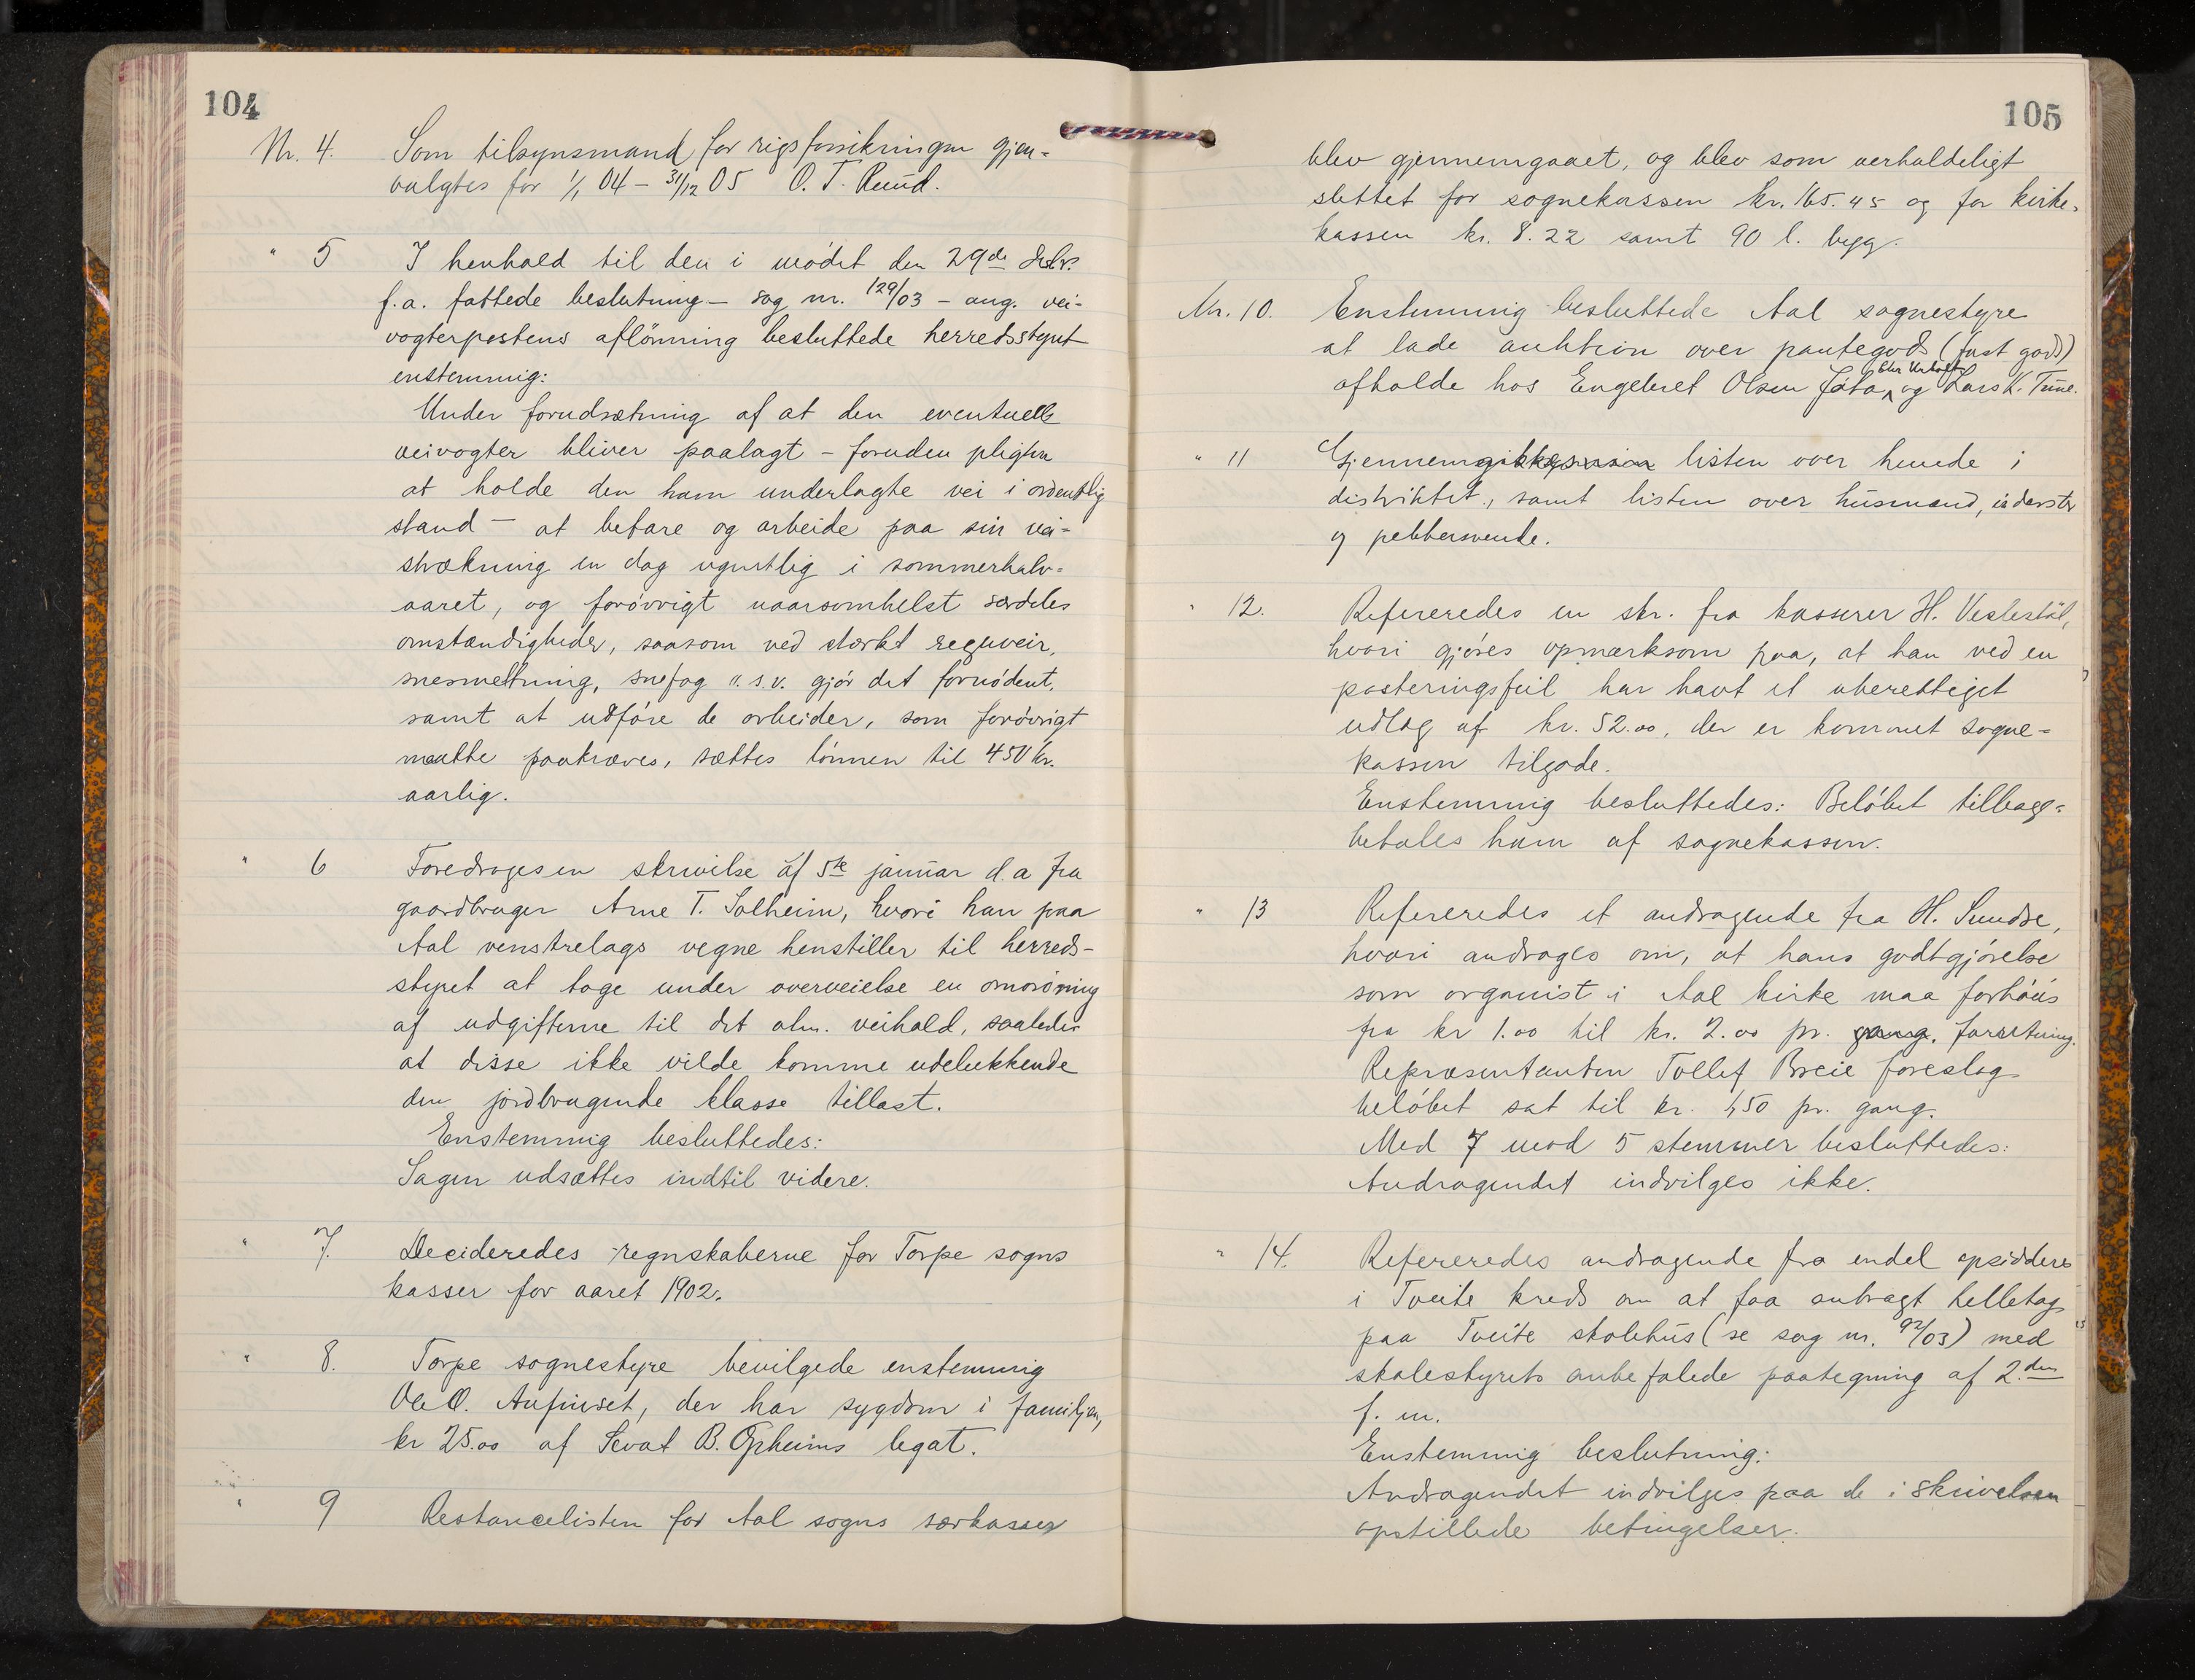 104
Nr. 4. Som tilsynsmand for rigsforsikringen gjen-
valgtes for 1/1 04 - 31/12 05 O. T. Ruud.
" 5 I henhold til den i mødet den 29de
f.a. fattede beslutning - sag nr. 129/03 - ang. vei-
vogterpostens aflønning besluttede herredsstyret
enstemmig:
Under forudsætning af at den eventuelle
veivogter bliver paalagt - foruden pligten
at holde den ham underlagte vei i ordentlig
stand - at befare og arbeide paa sin vei-
strækning en dag ugentlig i sommerhalv-
aaret, og forøvrigt naarsomhelst særdeles
omstændigheder, saasom ved stærkt regnveir,
snesmeltning, snefog o.s.v. gjør det fornødent,
samt at udføre de arbeider, som forøvrigt
maatte paakræves, sættes lønnen til 450 kr.
aarlig.
" 6 Foredroges en skrivelse af 5te januar d.a fra
gaardbruger Arne T. Solheim, hvori han paa
Aal venstrelags vegne henstiller til herreds-
styret at tage under overveielse en omordning
af udgifterne til det alm. veihold, saaledes
at disse ikke vilde komme udelukkende
den jordbrugende klasse tillast.
Enstemmig besluttedes:
Sagen udsættes indtil videre.
" 7. Decideredes regnskaberne for Torpe sogns
kasser for aaret 1902.
" 8. Torpe sognestyre bevilgede enstemmig
Ole O. Anfinset, der har sygdom i familjen,
kr 25.00 af Sevat B. Opheims legat.
" 9 Restancelisten for Aal sogns særkasser
105
blev gjennemgaaet, og blev som uerholdeligt
slettet for sognekassen kr. 165.45 og for kirke-
kassen kr. 8.22 samt 90 l. bygg.
Nr. 10. Enstemmig besluttede Aal sognestyre
at lade auktion over pantegods (fast gods)
afholde hos Engebret Olsen og Lars K. Tune.
" 11 listen over hunde i
distriktet, samt listen over husmænd, inderster
og pebbersvende.
" 12. Refereredes en skr. fra kasserer H. Veslestøl,
hvori gjøres opmærksom paa, at han ved en
posteringsfeil har havt et uberettiget
udlæg af kr. 52.00, der er kommet sogne-
kassen tilgode.
Enstemmig besluttedes: Beløbet tilbage-
betales ham af sognekassen.
" 13 Refereredes et andragende fra H. Sundre,
hvori andrages om, at hans godtgjørelse
som organist i Aal kirke maa forhøies
fra kr 1.00 til kr. 2.00 pr. gang. forretning.
Repræsentanten Tollef Breie foreslog
beløbet sat til kr. 1,50 pr. gang.
Med 7 mod 5 stemmer besluttedes:
Andragendet indvilges ikke.
" 14. Refereredes andragende fra endel opsiddere
i Tveite kreds om at faa anbragt helletag
paa Tveite skolehus (se sag nr. 92/03) med
skolestyrets anbefalede paategning af 2.den
f. m.
Enstemmig beslutning:
Andragendet indvilges paa de i skrivelsen
opstillede betingelser.